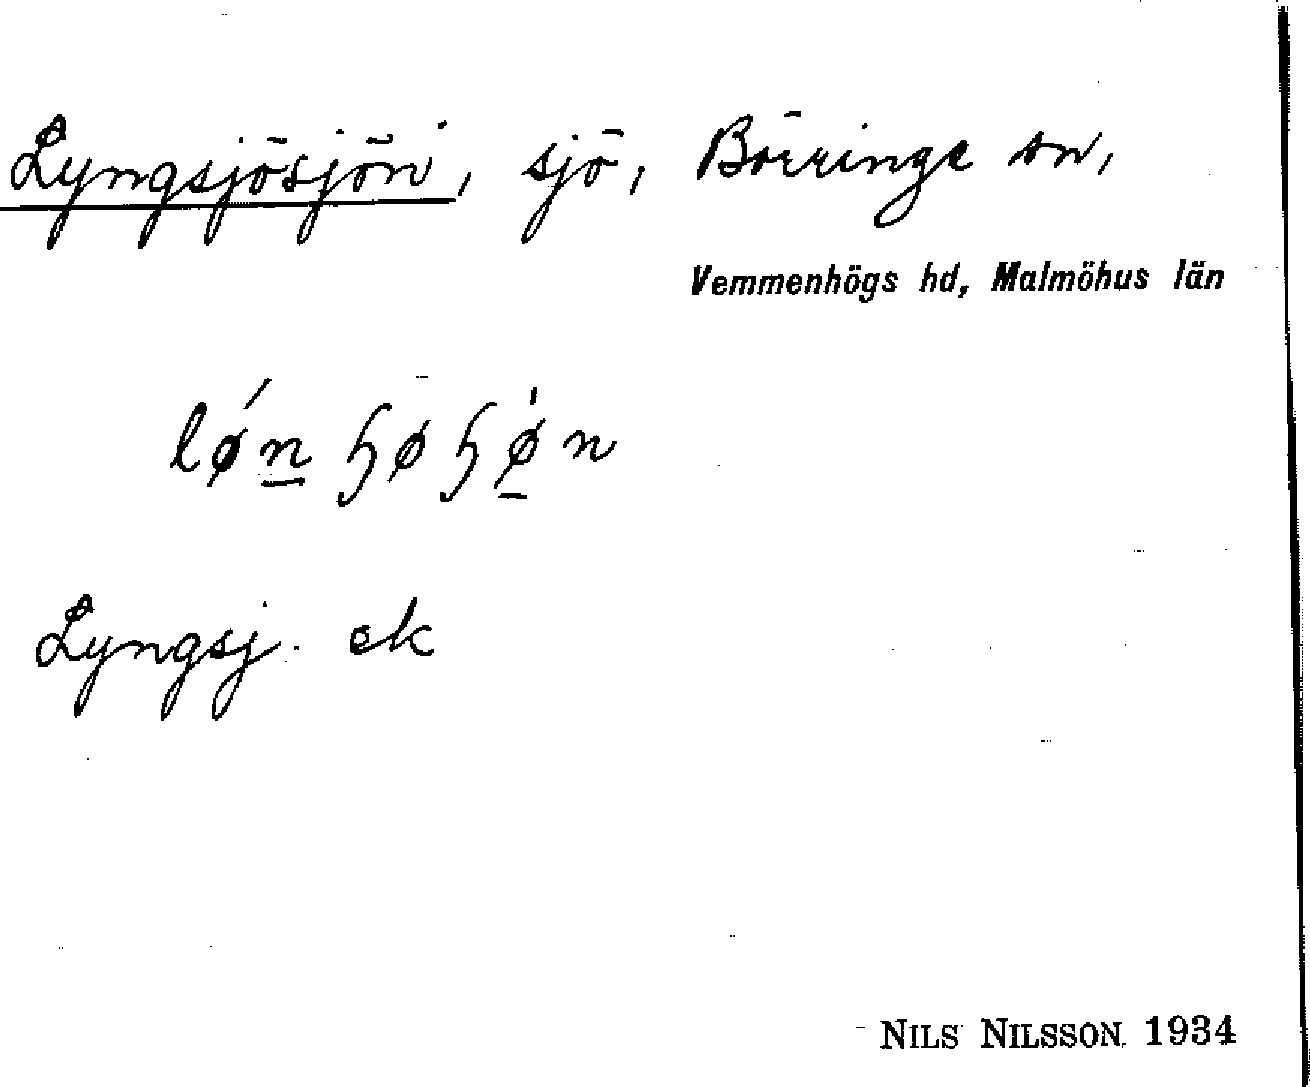 Lyngsjösjön, sjö, Börringe sn,
Vemmenhögs hd, Malmöhus län
lǿn̲ ɧøɧø̲̍n
Lyngsj. ek
NILS NILSSON 1934